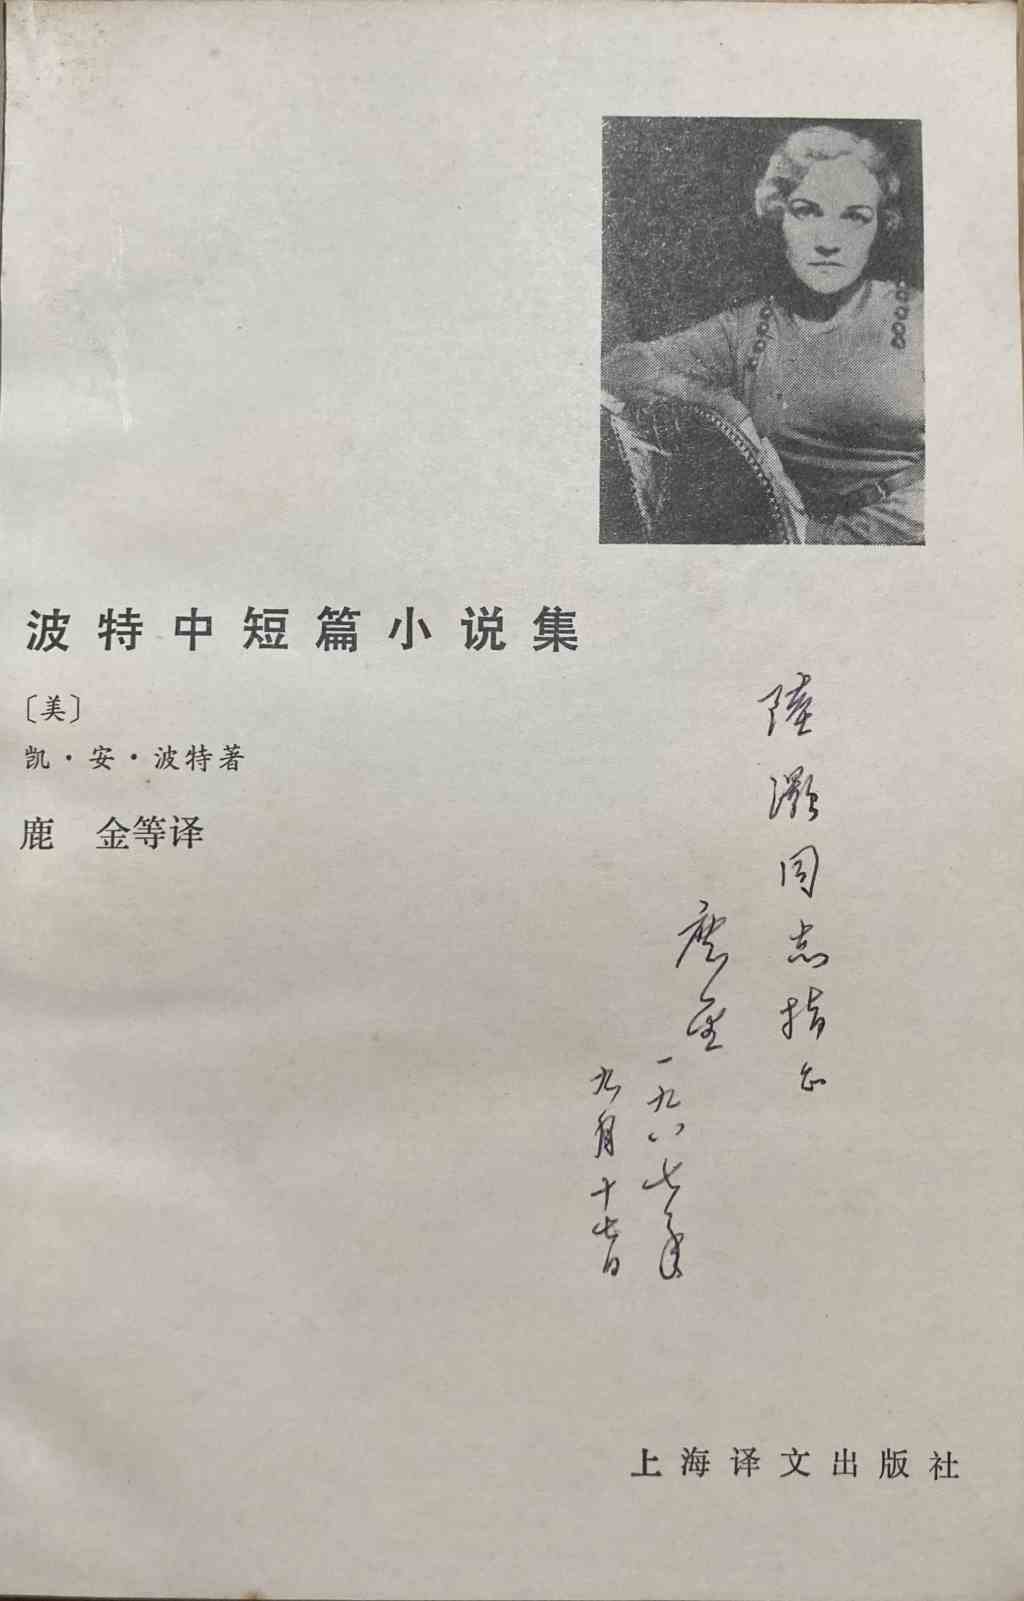 波特中短篇小说集
〔美〕
凯·安·波特著
鹿　金等译
陸灝同志指正
鹿金
一九八七年
九月十七日
上海译文出版社